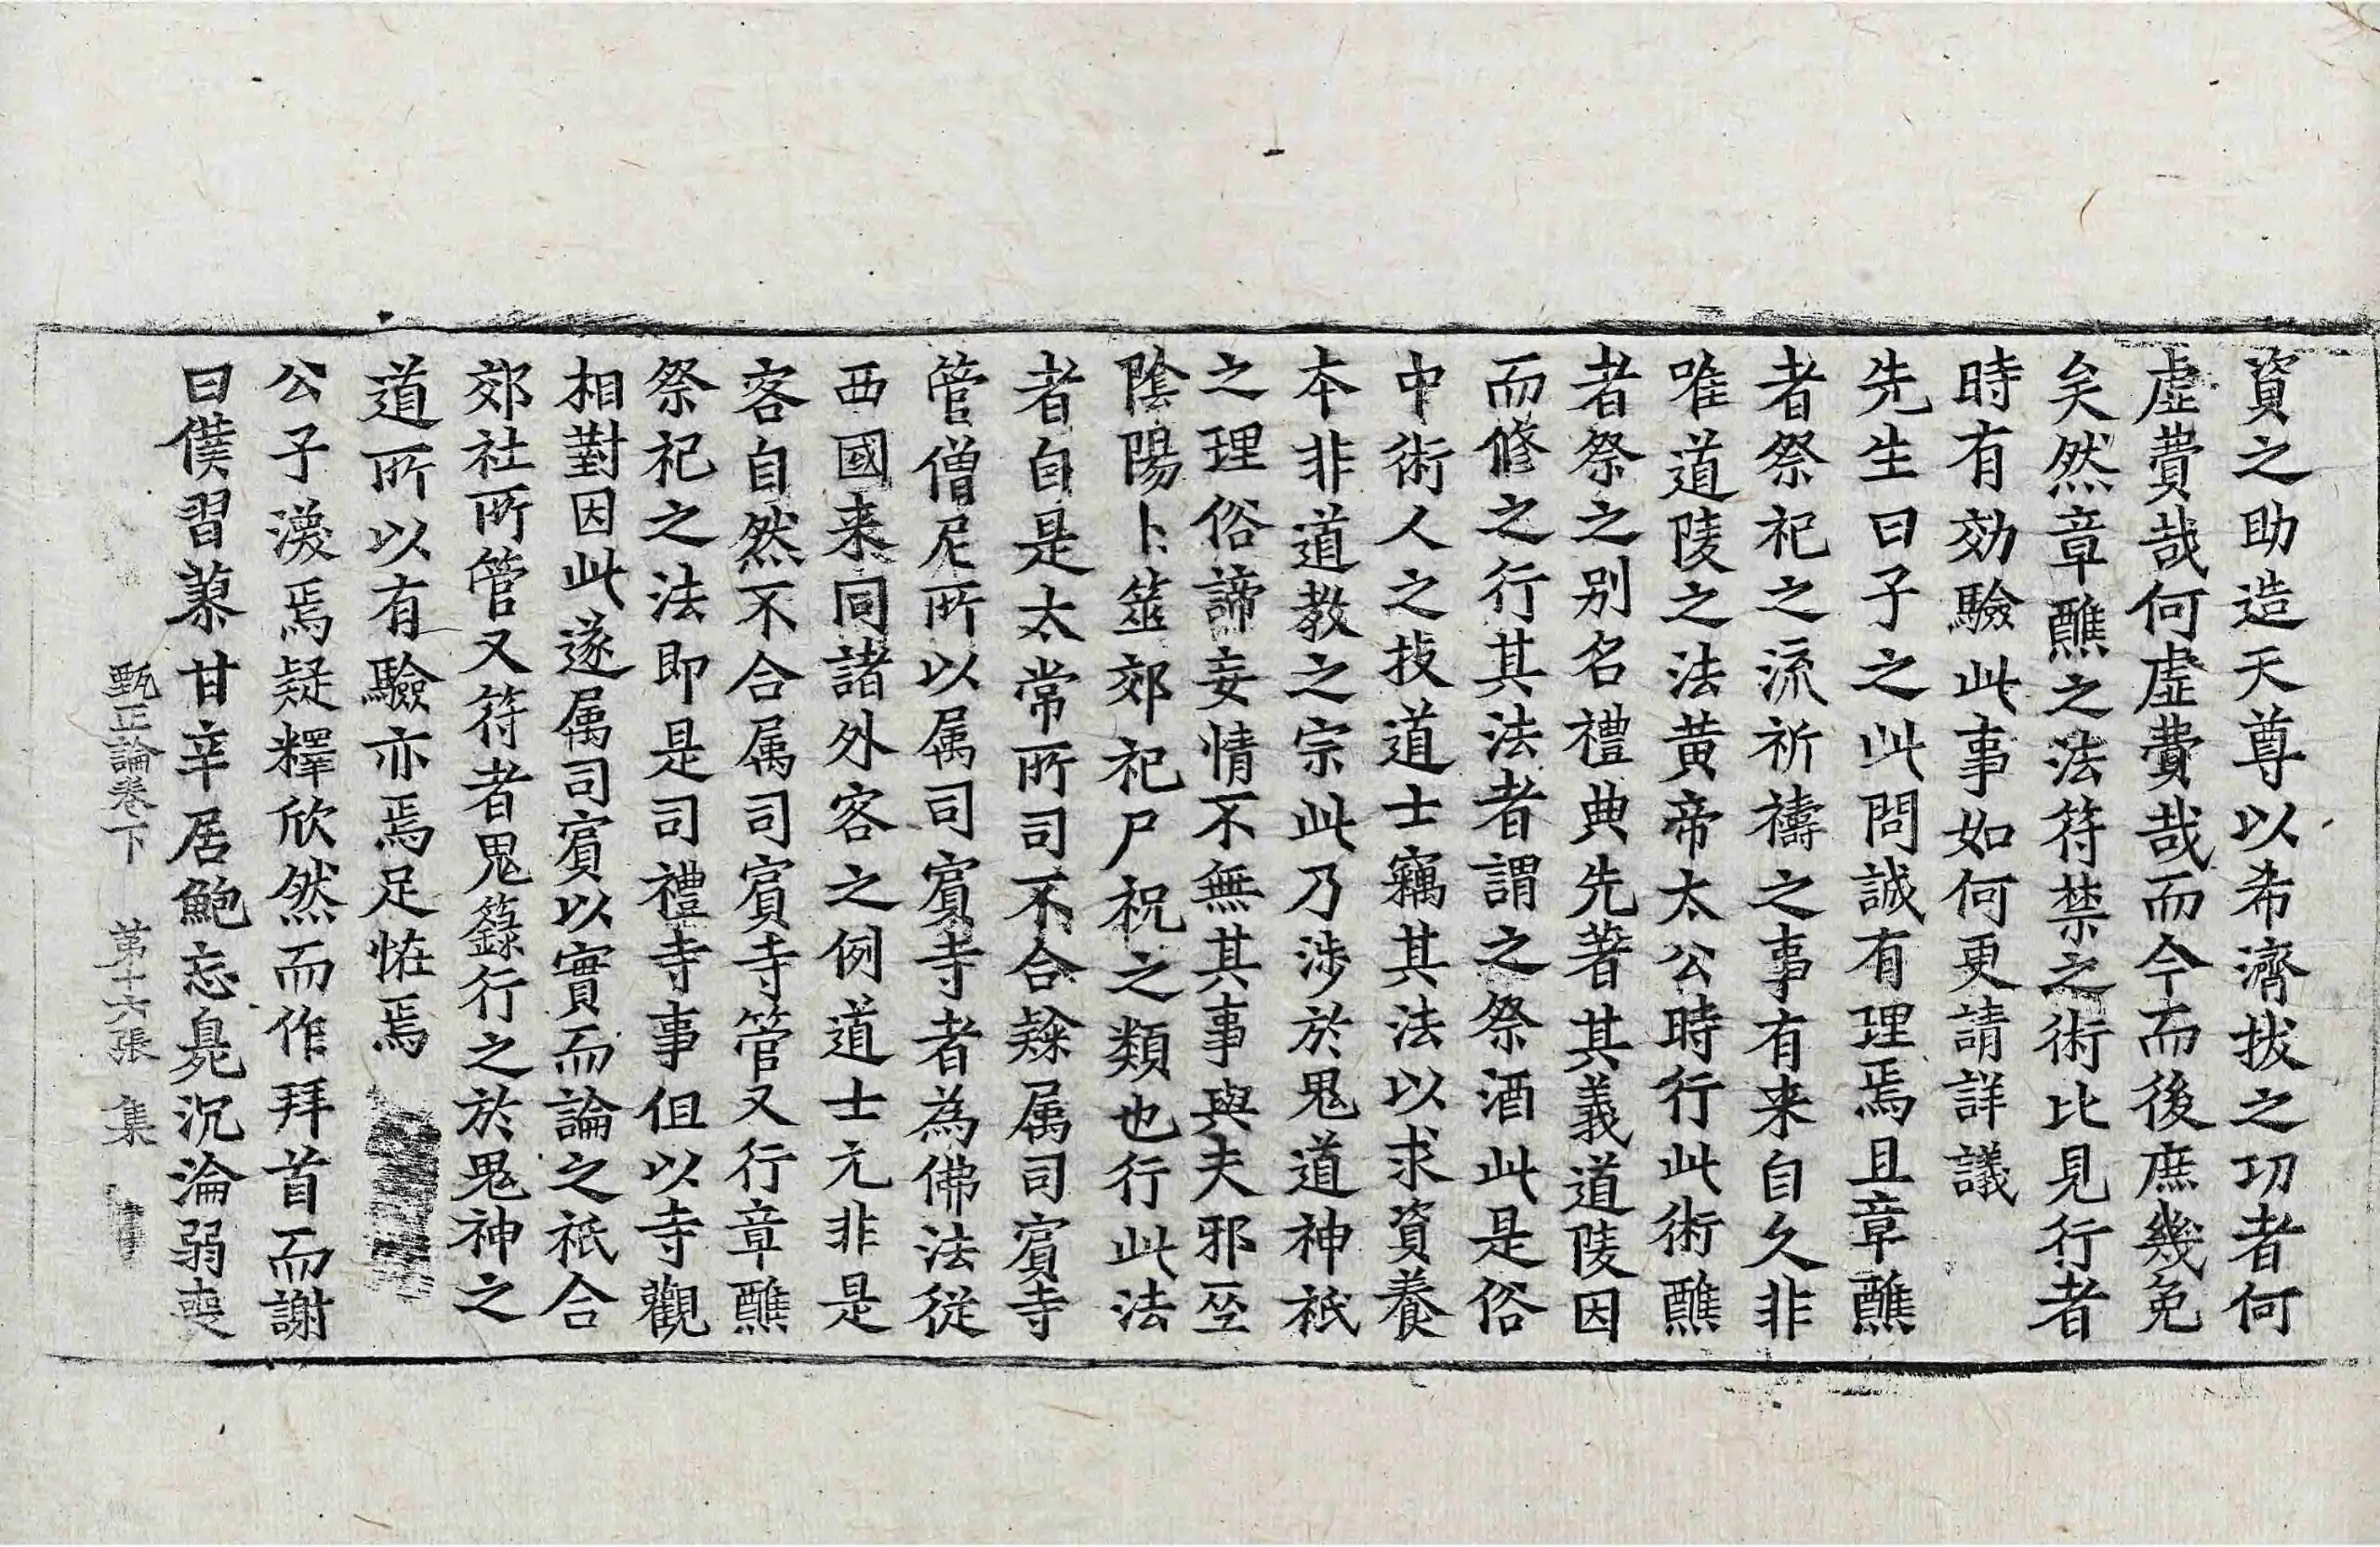 資之助造天尊以希濟拔之功者何
虛費哉何虛費哉而今而後庶幾免
矣然章醮之法符禁之術比見行者
時有効驗此事如何更請詳議
先生曰子之此問誠有理焉且章醮
者祭祀之流祈禱之事有来自久非
唯道陵之法黄帝太公時行此術醮
者祭之别名禮典先著其義道陵因
而修之行其法者謂之祭酒此是俗
中術人之技道士竊其法以求資養
本非道教之宗此乃涉於鬼道神祇
之理俗諦妄情不無其事與夫邪巫
陰陽卜筮郊祀尸祝之類也行此法
者自是太常所司不合隸属司賓寺
管僧尼所以属司賓寺者為佛法從
西國来同諸外客之例道士元非是
客自然不合属司賓寺管又行章醮
祭祀之法即是司禮寺事但以寺觀
相對因此遂属司賓以實而論之祇合
郊社所管又符者鬼籙行之於鬼神之
道所以有驗亦焉足恠焉
公子渙焉疑釋欣然而作拜首而謝
曰僕習蓼甘辛居鮑忘臭沉淪弱喪
甄正論卷下　第十六張　集